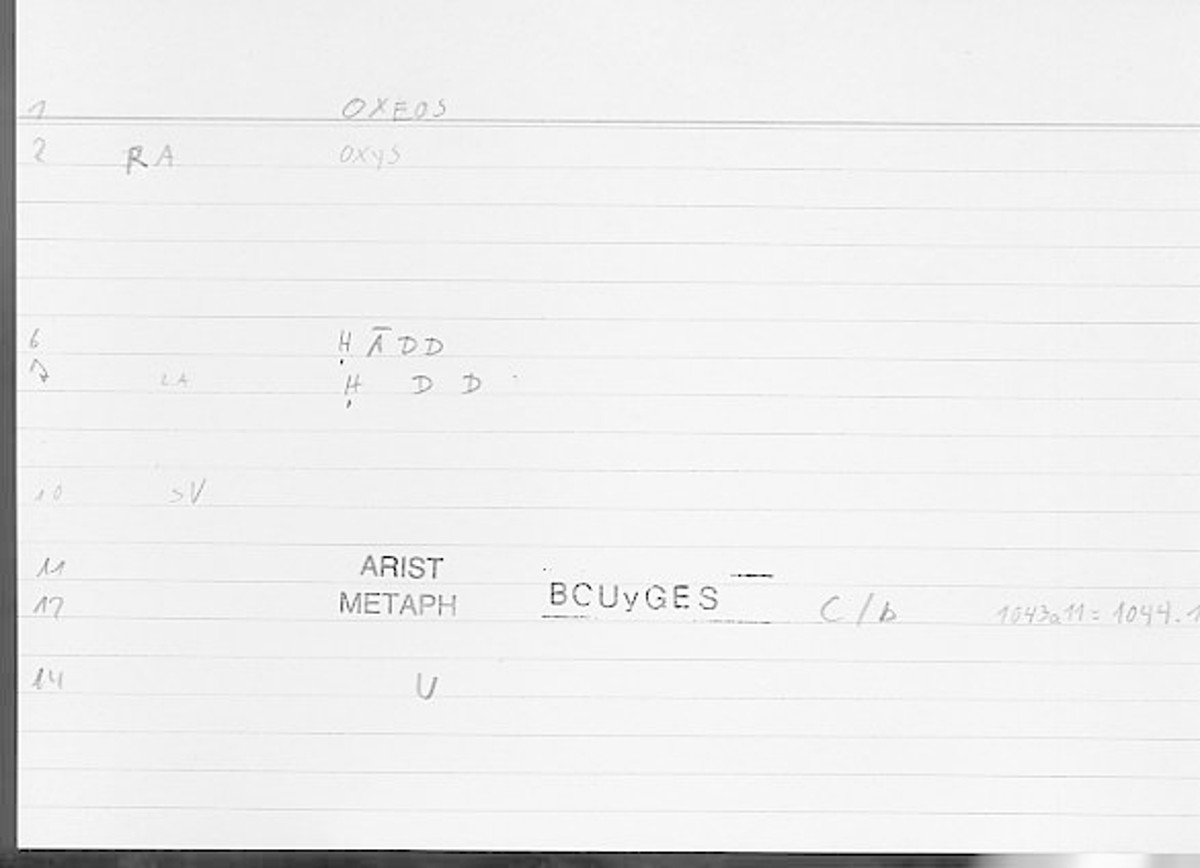 1 OXEOS
2 RA OXyS
6 Ḥ Ā D D
7 LA Ḥ D D
10 SV
11 ARIST
12 METAPH BCUyGES C/b 1043a11 = 1044.1
14 U